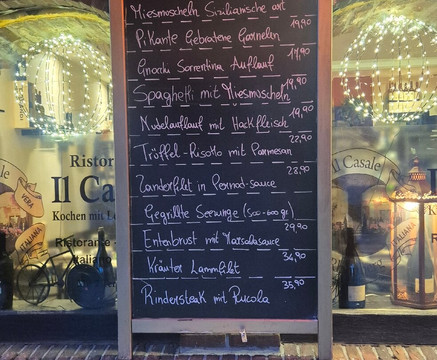 Miesmuscheln Sizilianische art
19,90
Pikante Gebratene Garnelen
17,90
Gnocchi Sorrentina Auflauf
19,90
Spaghetti mit Miesmuscheln
19,90
Nudelauflauf mit Hackfleisch
22,90
Trüffel-Risotto mit Parmesan
28,90
Zanderfilet in Pernod-sauce
Gegrillte Seezunge (500-600 gr)
29,90
Entenbrust mit Marsalasauce
34,90
Kräuter Lammfilet
35,90
Rindersteak mit Rucola
Ristor
Il Ca
Kochen mit L
Ristorante -
Italiano
VERA
ITALIANA
Il Casale